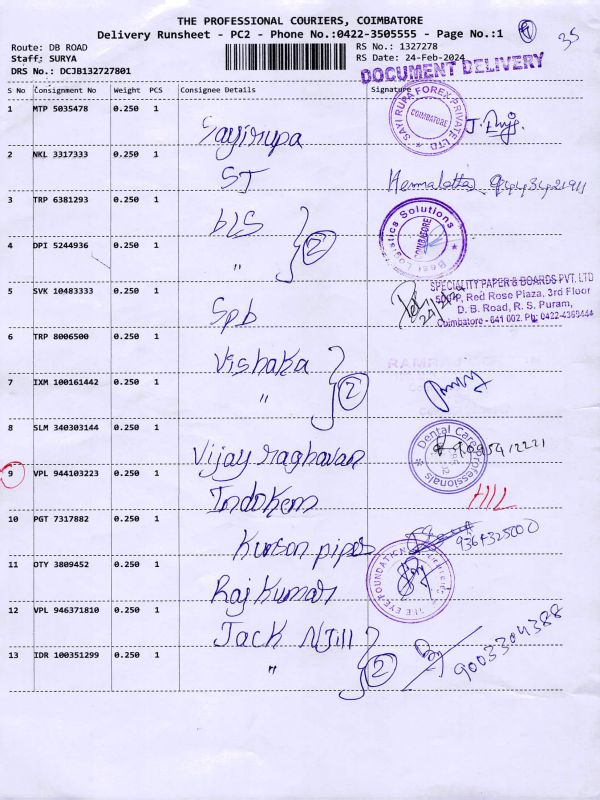 THE PROFESSIONAL COURIERS, COIMBATORE
Delivery Runsheet - PC2 - Phone No.:0422-3505555 - Page No.:1
35
Route: DB ROAD
Staff: SURYA
DRS No.: DCJB132727801
RS No.: 1327278
RS Date: 24-Feb-2024
DOCUMENT DELIVERY
S No Consignment No Weight PCS Consignee Details Signature
1 MTP 5035478 0.250 1
Sayirupa
SAYI RUPA FOREX PRIVATE LTD.
COIMBATORE
2 NKL 3317333 0.250 1
ST
Hemalatha 9443421911
3 TRP 6381293 0.250 1
bLS
Best Logistics Solutions
COIMBATORE
4 DPI 5244936 0.250 1
" 2
5 SVK 10483333 0.250 1
Spb
24/2/24
SPECIALITY PAPER & BOARDS PVT. LTD
Red Rose Plaza, 3rd Floor
D. B. Road, R. S. Puram,
Coimbatore - 641 002. Ph: 0422-4369444
6 TRP 8006500 0.250 1
Vishaka
7 IXM 100161442 0.250 1
" 2
8 SLM 340303144 0.250 1
Vijay raghavan
Dental Care Professionals
9 VPL 944103223 0.250 1
Indokem
HIL
10 PGT 7317882 0.250 1
Kurson pipes
9364325000
11 OTY 3809452 0.250 1
Raj Kumar
THE EYE FOUNDATION
12 VPL 946371810 0.250 1
Jack N Jill
9003304388
13 IDR 100351299 0.250 1
" 2